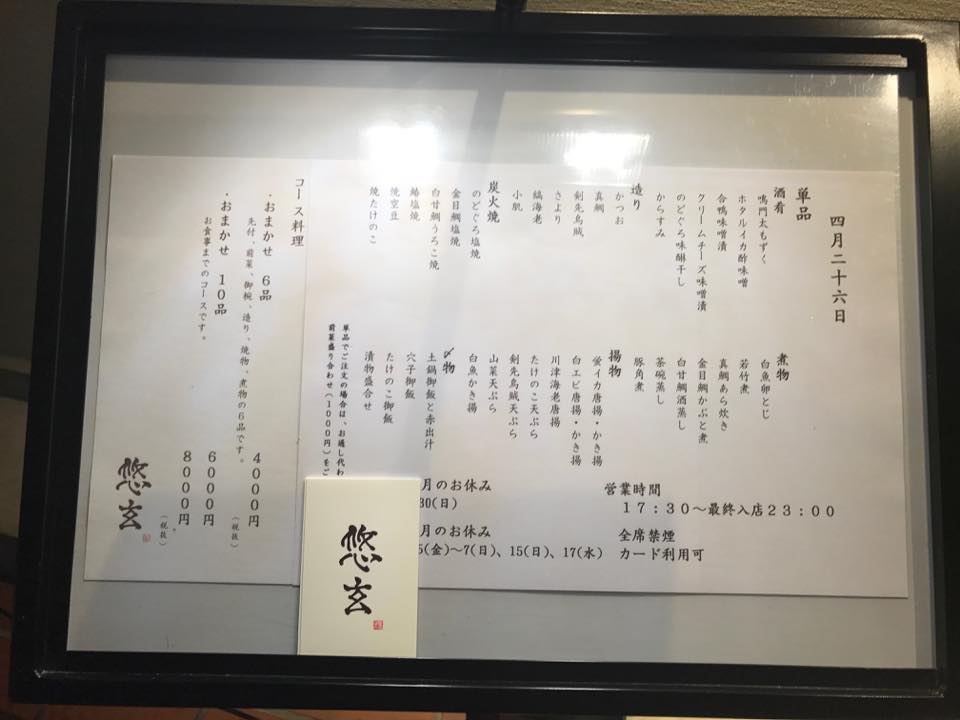 四月二十六日
単品
酒肴
鳴門太もずく
ホタルイカ酢味噌
合鴨味噌漬
クリームチーズ味噌漬
のどぐろ味醂干し
からすみ
造り
かつお
真鯛
剣先烏賊
さより
縞海老
小肌
炭火焼
のどぐろ塩焼
金目鯛塩焼
白甘鯛うろこ焼
鰆塩焼
焼空豆
焼たけのこ
煮物
白魚卵とじ
若竹煮
真鯛あら炊き
金目鯛かぶと煮
白甘鯛酒蒸し
茶碗蒸し
豚角煮
揚物
蛍イカ唐揚・かき揚
白エビ唐揚・かき揚
川津海老唐揚
たけのこ天ぷら
剣先烏賊天ぷら
山菜天ぷら
白魚かき揚
〆物
土鍋御飯と赤出汁
穴子御飯
たけのこ御飯
漬物盛合せ
単品でご注文の場合は、お通し代わ
前菜盛り合わせ(1000円)をご
コース料理
・おまかせ 6品 4000円
(税抜)
先付、前菜、御椀、造り、焼物、煮物の6品です。
・おまかせ 10品 6000円
お食事までのコースです。
8000円
(税抜)
悠玄
営業時間
17:30~最終入店23:00
全席禁煙
カード利用可
月のお休み
30(日)
月のお休み
5(金)~7(日)、15(日)、17(水)
悠玄